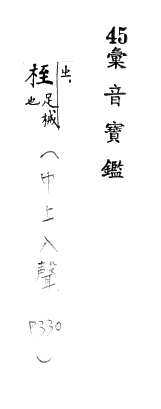 45彙音寶鑑
出
桎足械也
(巾上入聲P330)